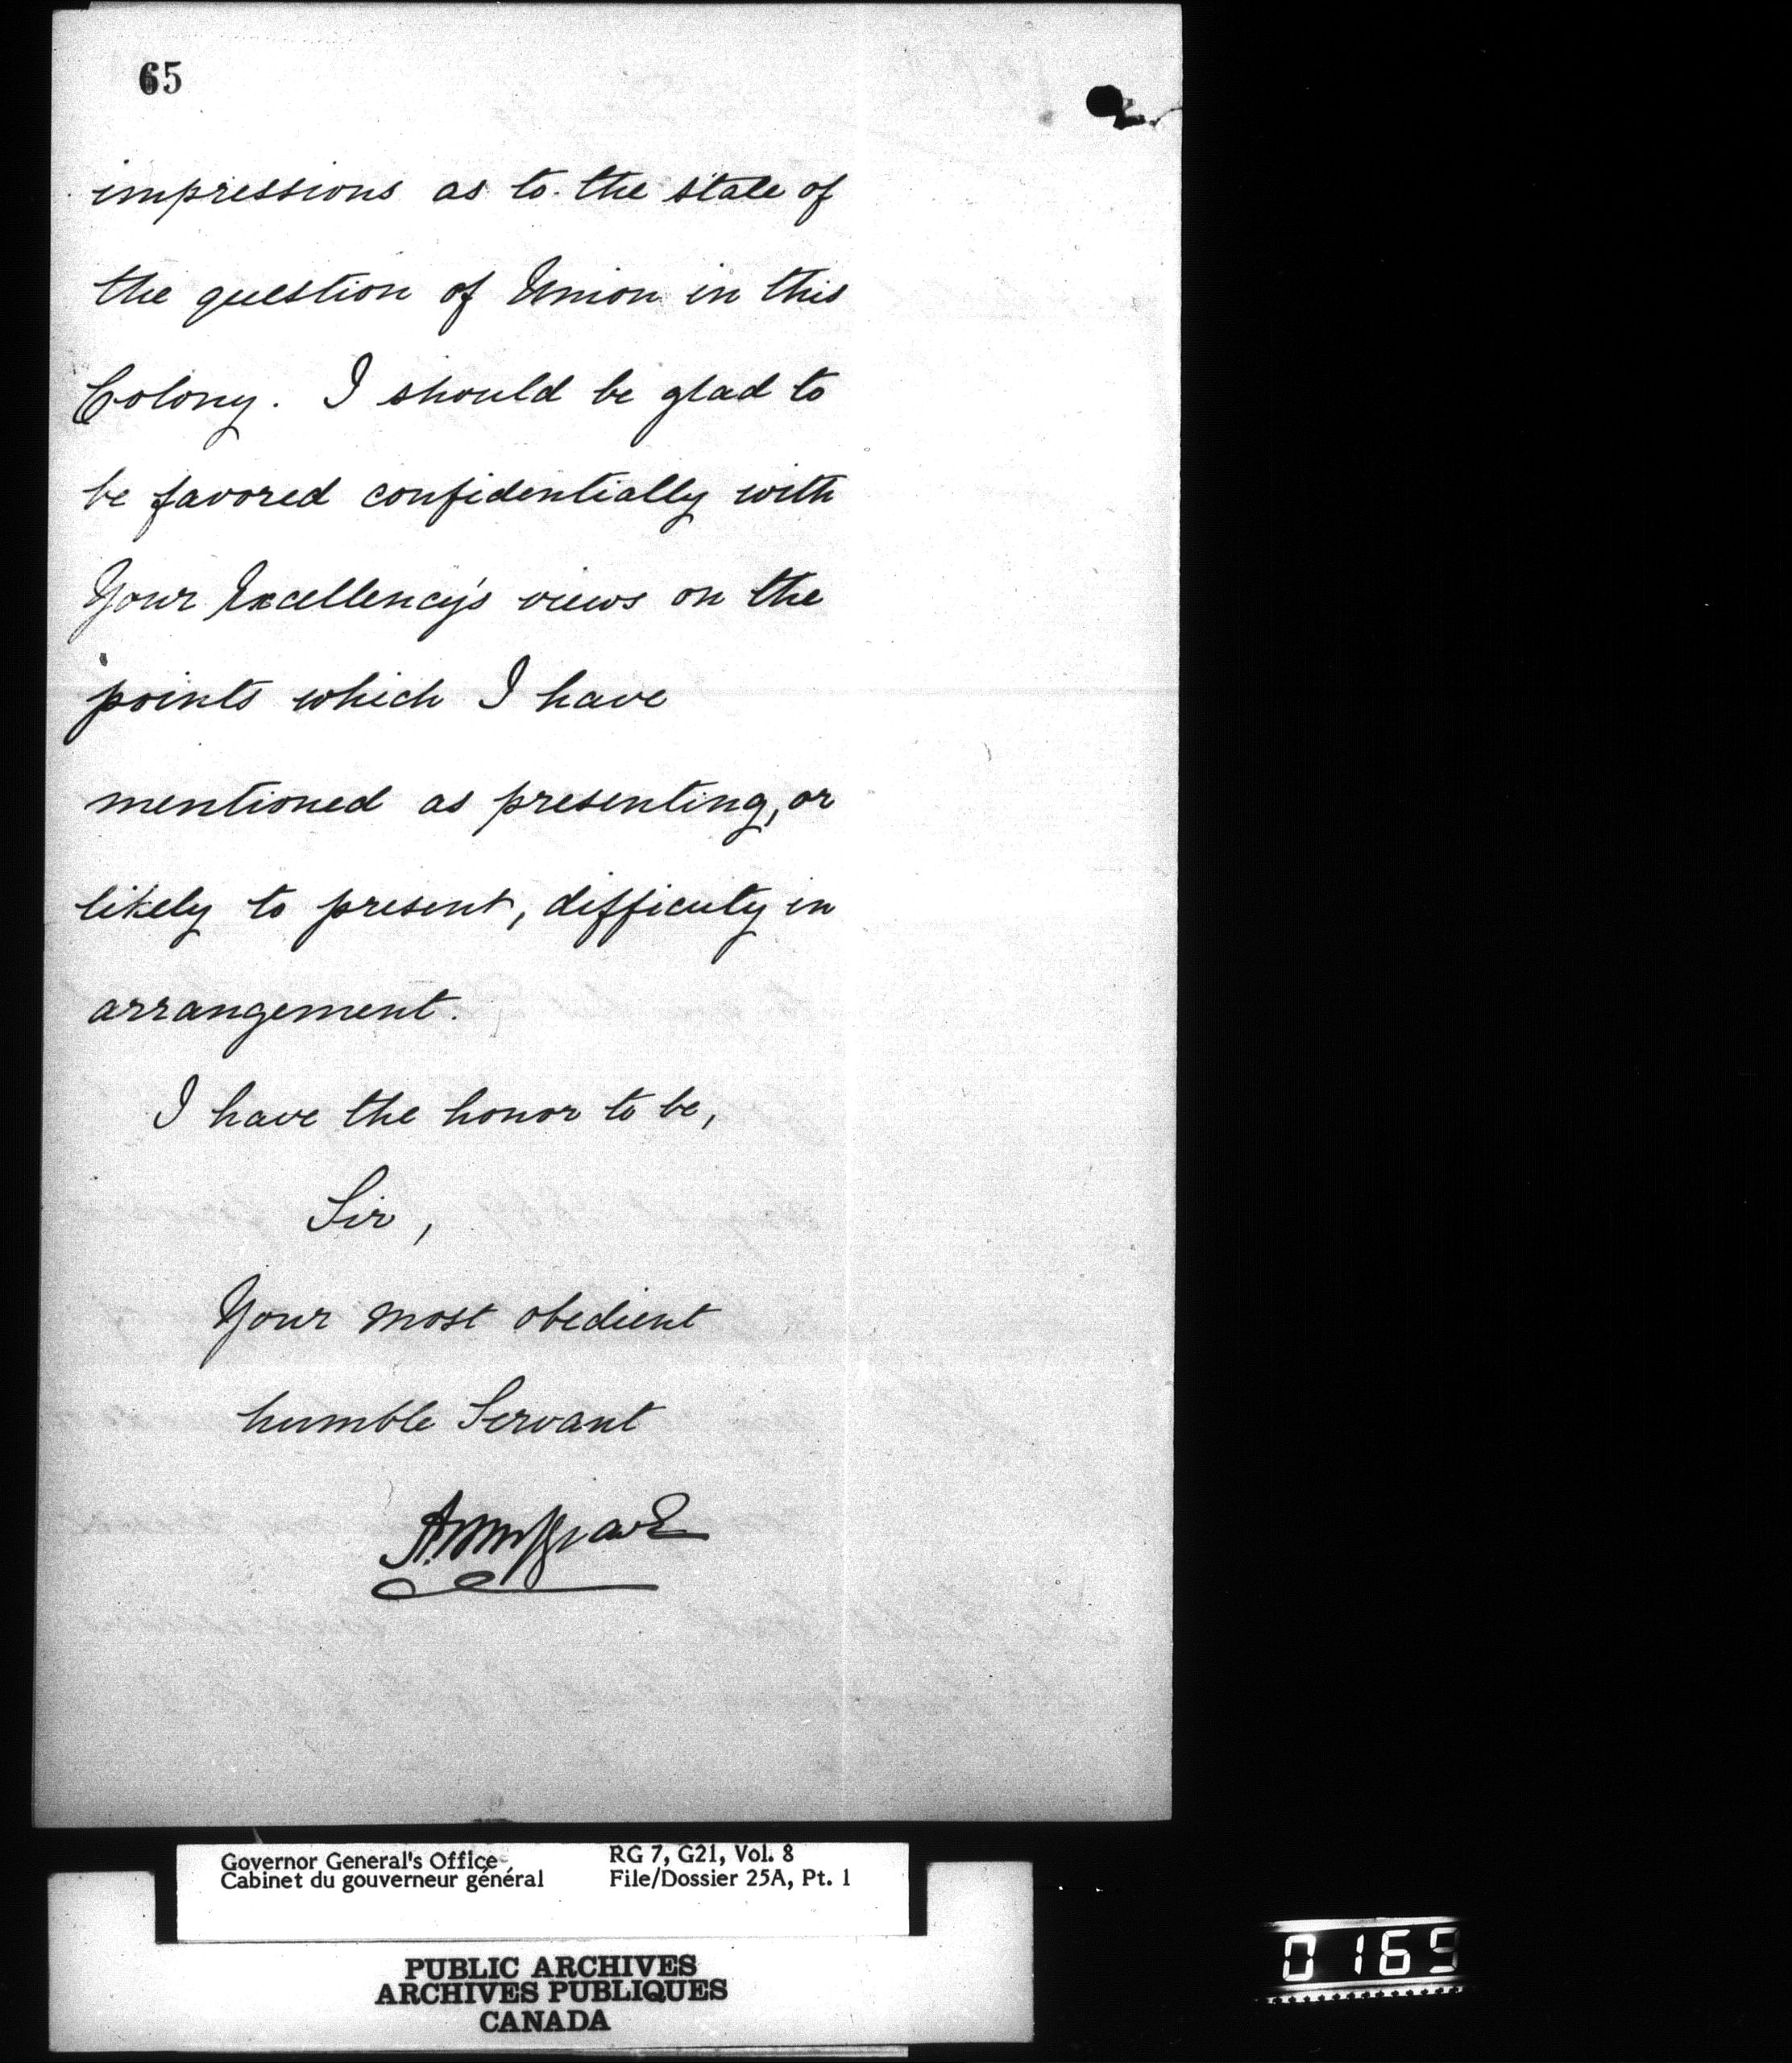 65
impressions as to the state of
the question of Union in this
Colony. I should be glad to
be favored confidentially with
Your Excellency's views on the
points which I have
mentioned as presenting, or
likely to present, difficulty in
arrangement.
I have the honor to be,
Sir,
Your most obedient
humble Servant
A. Musgrave
Governor General's Office
Cabinet du gouverneur général
RG 7, G21, Vol. 8
File/Dossier 25A, Pt. 1
PUBLIC ARCHIVES
ARCHIVES PUBLIQUES
CANADA
0165